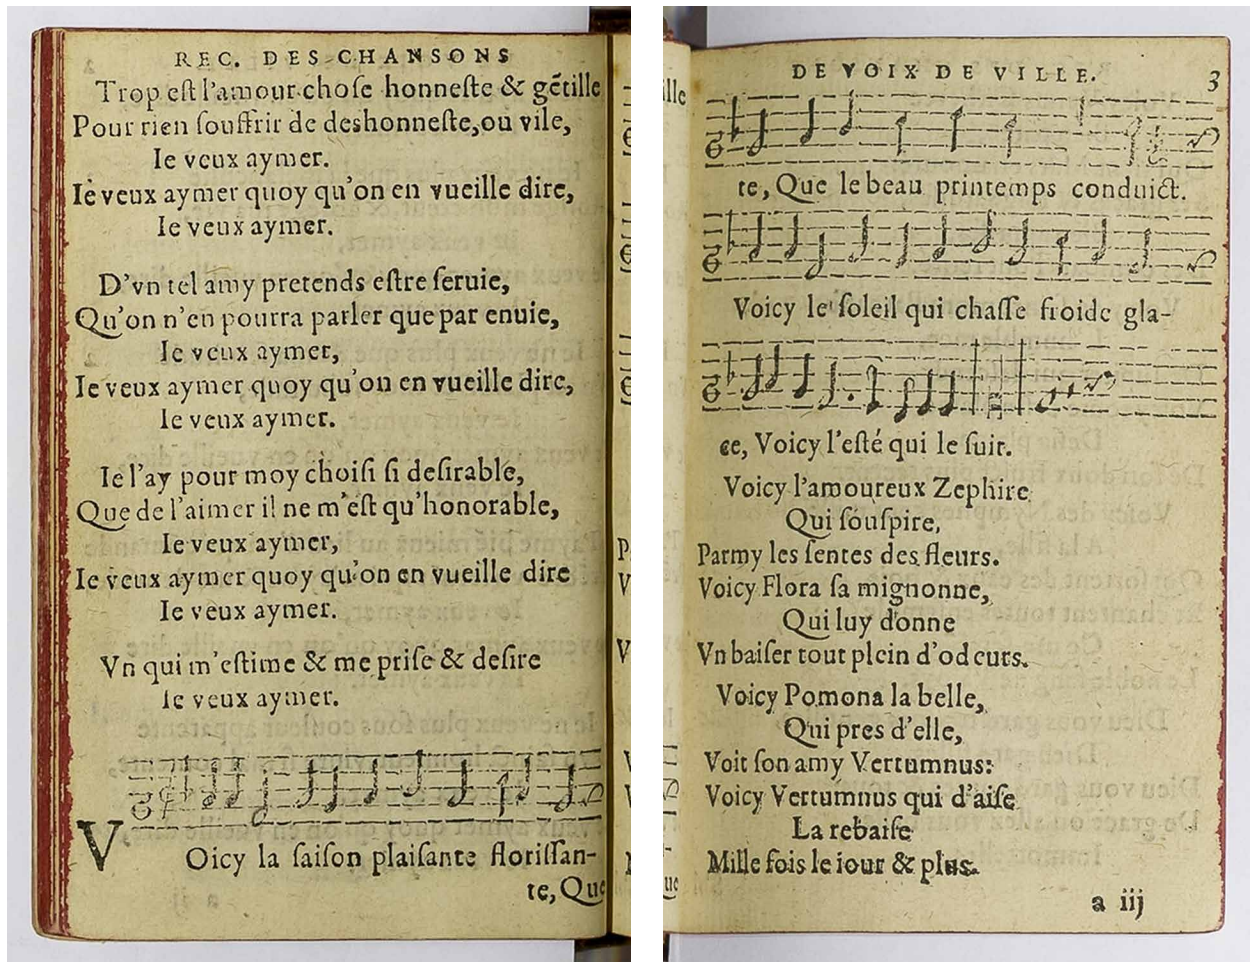 REC. DES CHANSONS
Trop eſt l'amour choſe honneſte & gẽtille
Pour rien ſouffrir de deshonneſte, ou vile,
Ie veux aymer.
Ie veux aymer quoy qu'on en vueille dire,
Ie veux aymer.
D'vn tel amy pretends eſtre ſeruie,
Qu'on n'en pourra parler que par enuie,
Ie veux aymer,
Ie veux aymer quoy qu'on en vueille dire,
Ie veux aymer.
Ie l'ay pour moy choiſi ſi deſirable,
Que de l'aimer il ne m'eſt qu'honorable,
Ie veux aymer,
Ie veux aymer quoy qu'on en vueille dire
Ie veux aymer.
Vn qui m'eſtime & me priſe & deſire
Ie veux aymer.
VOicy la ſaiſon plaiſante floriſſan-
te, Que
DE VOIX DE VILLE.
3
te, Que le beau printemps conduict.
Voicy le ſoleil qui chaſſe froide gla-
ce, Voicy l'eſté qui le ſuit.
Voicy l'amoureux Zephire
Qui ſouſpire,
Parmy les ſentes des fleurs.
Voicy Flora ſa mignonne,
Qui luy donne
Vn baiſer tout plein d'odeurs.
Voicy Pomona la belle,
Qui pres d'elle,
Voit ſon amy Vertumnus:
Voicy Vertumnus qui d'aiſe
La rebaiſe
Mille fois le iour & plus.
a iij